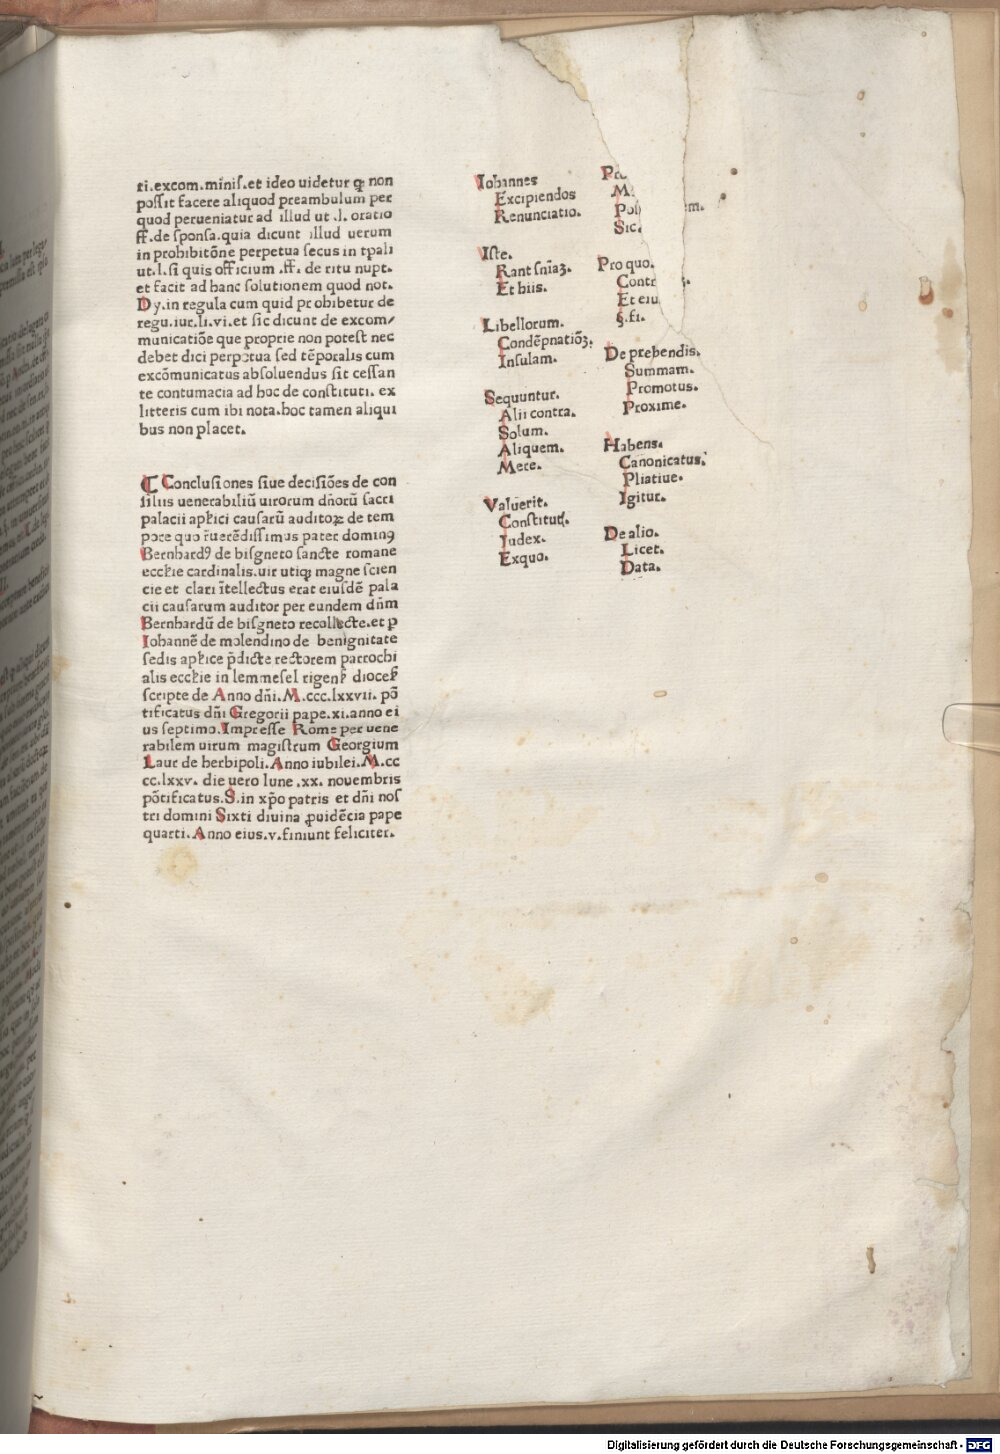 ti.excom.minis.et ideo uidetur ꝙ non
possit facere aliquod preambulum per
quod perueniatur ad illud ut .l. oratio
ff.de sponsa.quia dicunt illud uerum
in prohibitōne perpetua secus in tpali
ut.l.si quis officium .ff. de ritu nupt.
et facit ad hanc solutionem quod not.
Dy.in regula cum quid prohibetur de
regu.iur.li.vi.et sic dicunt de excom/
municatiōe que proprie non potest nec
debet dici perpetua sed tēporalis cum
excōmunicatus absoluendus sit cessan
te contumacia ad hoc de constituti. ex
litteris cum ibi nota.hoc tamen aliqui
bus non placet.
Conclusiones siue decisiōes de con
siliis uenerabiliū uirorum dn̄orū sacri
palacii apl̄ici causarū auditoꝝ de tem
pore quo r̄uerēdissimus pater dominꝰ
Bernhardꝰ de bisgneto sancte romane
eccl̄ie cardinalis.uir utiqꝫ magne scien
cie et clari ītellectus erat eiusdē pala
cii causarum auditor per eundem dn̄m
Bernhardū de bisgneto recollecte.et p
Iohannē de molendino de benignitate
sedis apl̄ice p̄dicte rectorem parrochi
alis eccl̄ie in lemmesel rigen̄ dioces̄
scripte de Anno dn̄i.M.ccc.lxxvii. pō
tificatus dn̄i Gregorii pape.xi.anno ei
us septimo.Impresse Rome per uene
rabilem uirum magistrum Georgium
Laur de herbipoli.Anno iubilei.M.cc
cc.lxxv. die uero lune .xx. nouembris
pōtificatus.S.in xp̄o patris et dn̄i nos
tri domini Sixti diuina ꝓuidēcia pape
quarti.Anno eius.v.finiunt feliciter.
Iohannes
Excipiendos
Renunciatio.
Iste.
Rant sn̄iaꝫ.
Et hiis.
Libellorum.
Condēpnatiōꝫ.
Insulam.
Sequuntur.
Alii contra.
Solum.
Aliquem.
Mere.
Valuerit.
Constitut̄.
Iudex.
Exquo.
Sic.
Pro quo.
Et eiu
§.fi.
De prehendis.
Summam.
Promotus.
Proxime.
Habens.
Canonicatus.
Pliatiue.
Igitur.
De alio.
Licet.
Data.
Digitalisierung gefördert durch die Deutsche Forschungsgemeinschaft - DFG